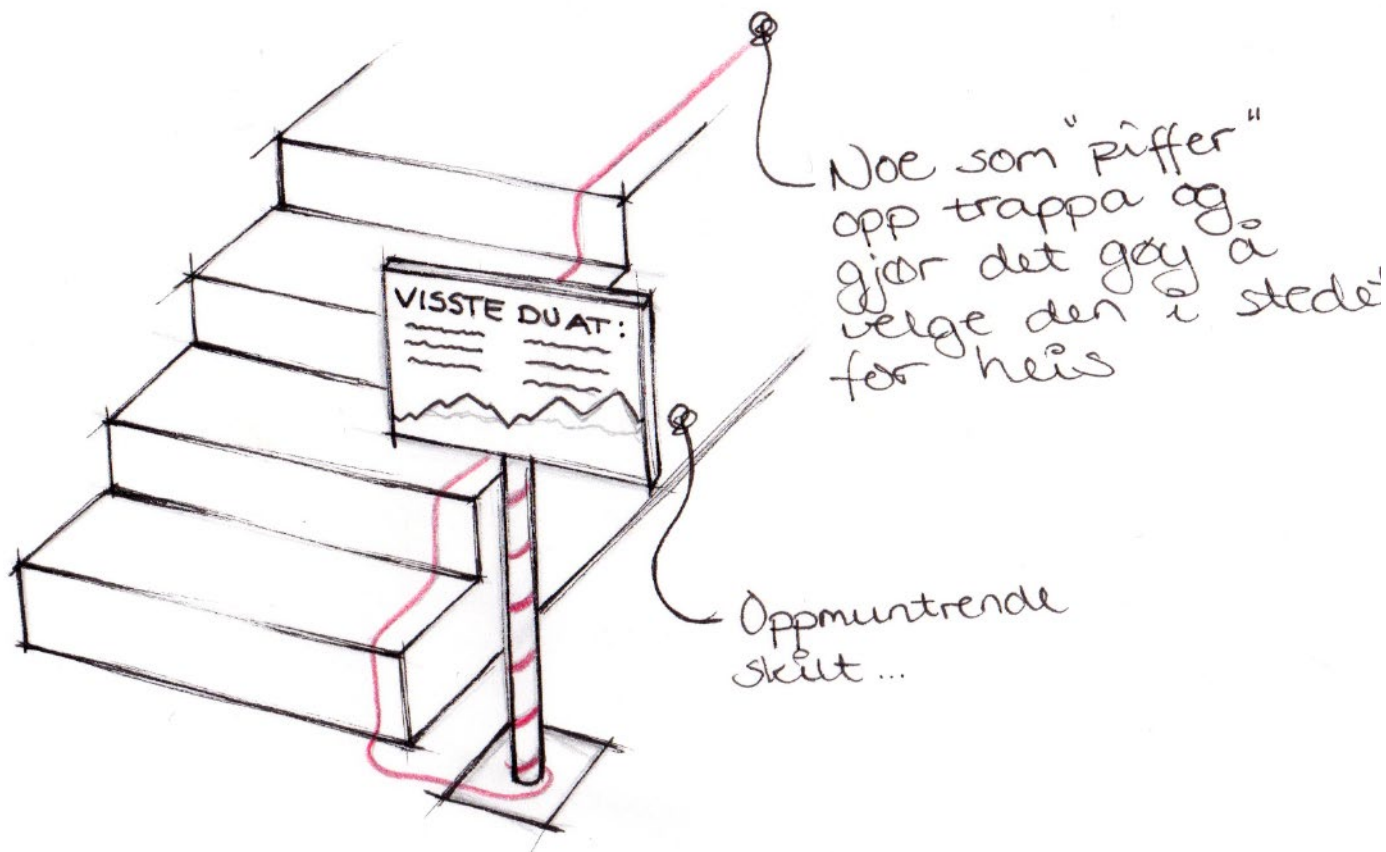 Noe som "piffer"
opp trappa og
gjør det gøy å
velge den i stedet
for heis
VISSTE DU AT:
Oppmuntrende
skilt...